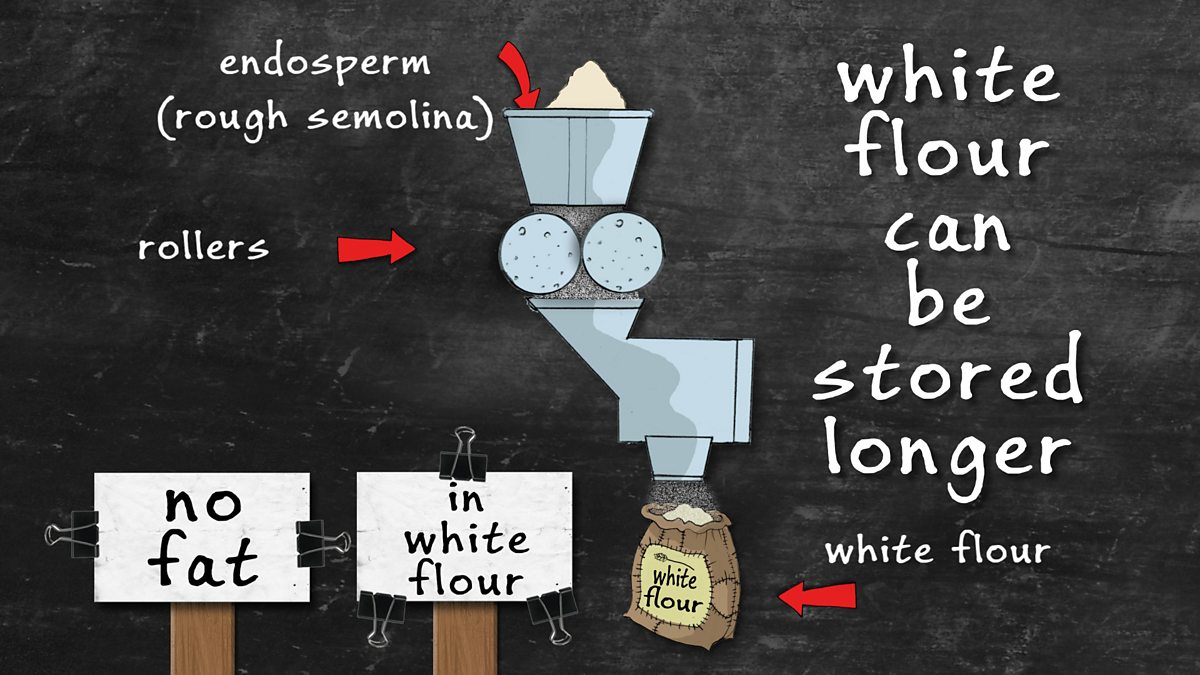 endosperm
(rough semolina)
rollers
white
flour
can
be
stored
longer
no
fat
in
white
flour
white
flour
white flour